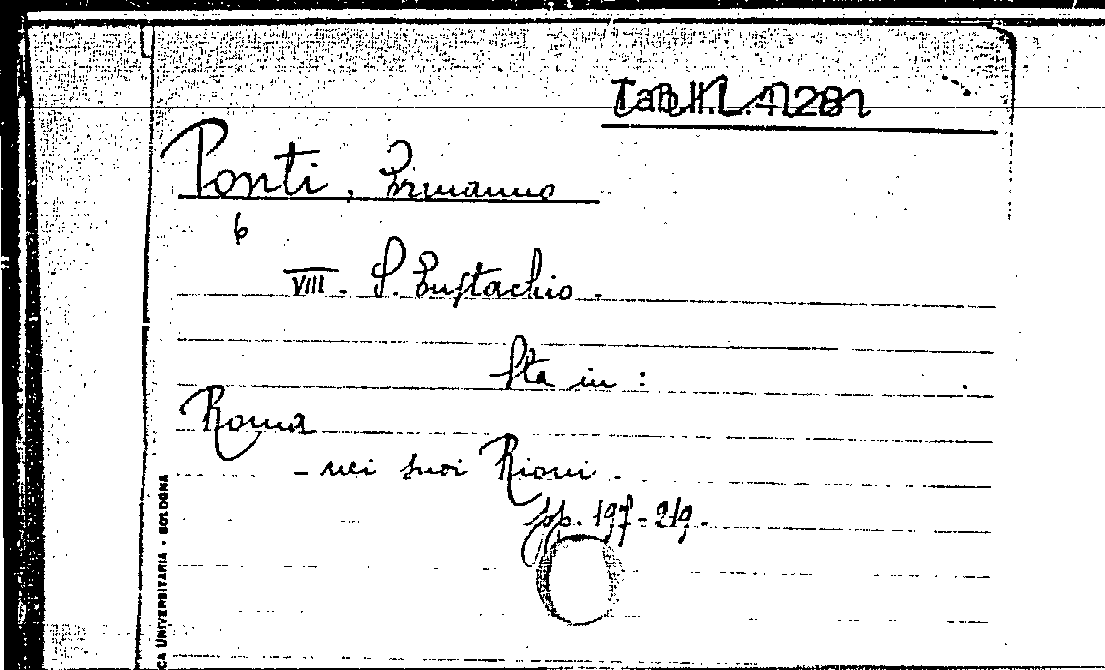 Tab.II.L.4.281
Ponti, Ermanno
6
VIII. S. Eustachio.
Sta in :
Roma
- nei suoi Rioni.
pp. 197-219.
CA UNIVERSITARIA - BOLOGNA